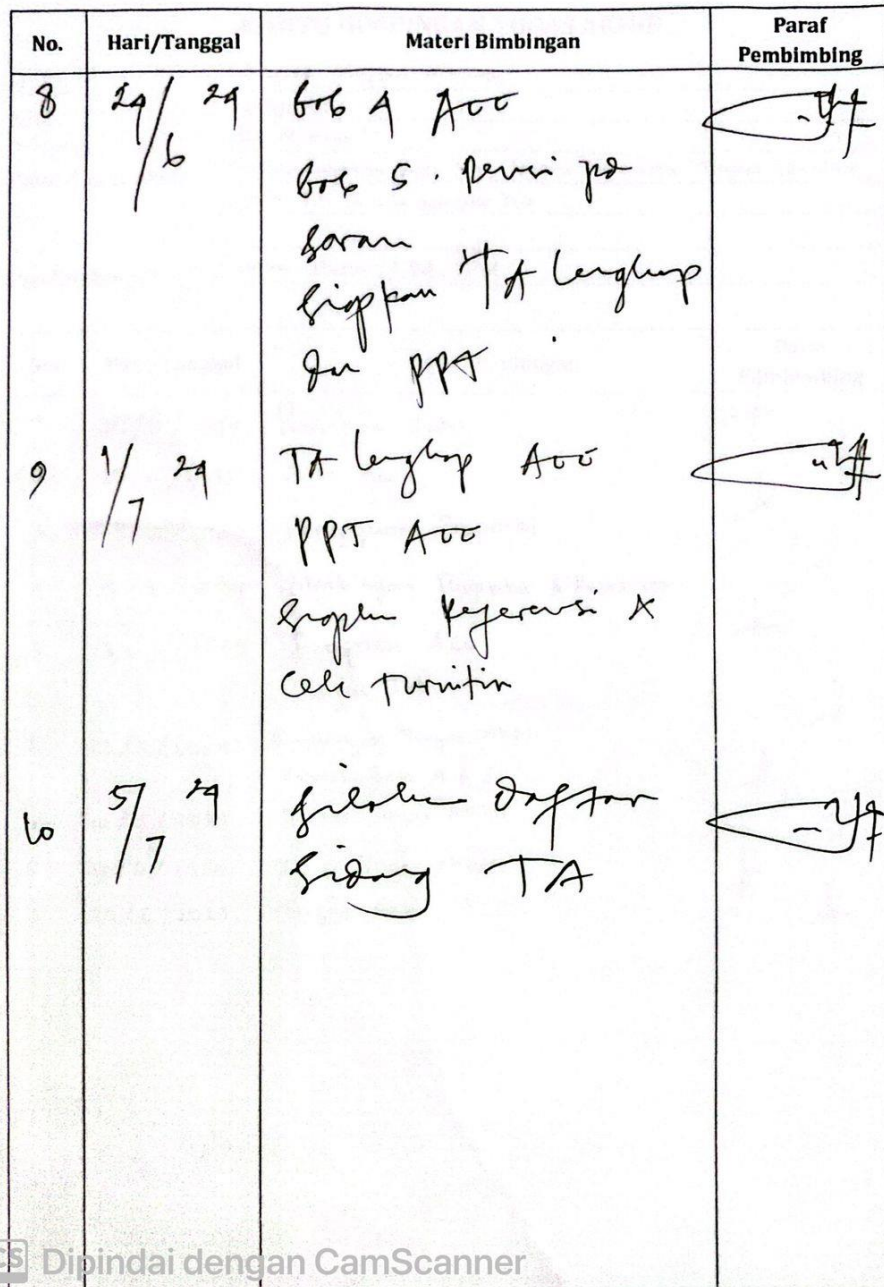 No. Hari/Tanggal Materi Bimbingan Paraf Pembimbing
8 24/6 24 Bab 4 Acc
Bab 5. Revisi pd
Saran
Siapkan TA lengkap
dan PPT
9 1/7 24 TA lengkap Acc
PPT Acc
Siapkan Referensi &
Cek Turnitin
10 5/7 24 Silakan Daftar
Sidang TA
CS Dipindai dengan CamScanner